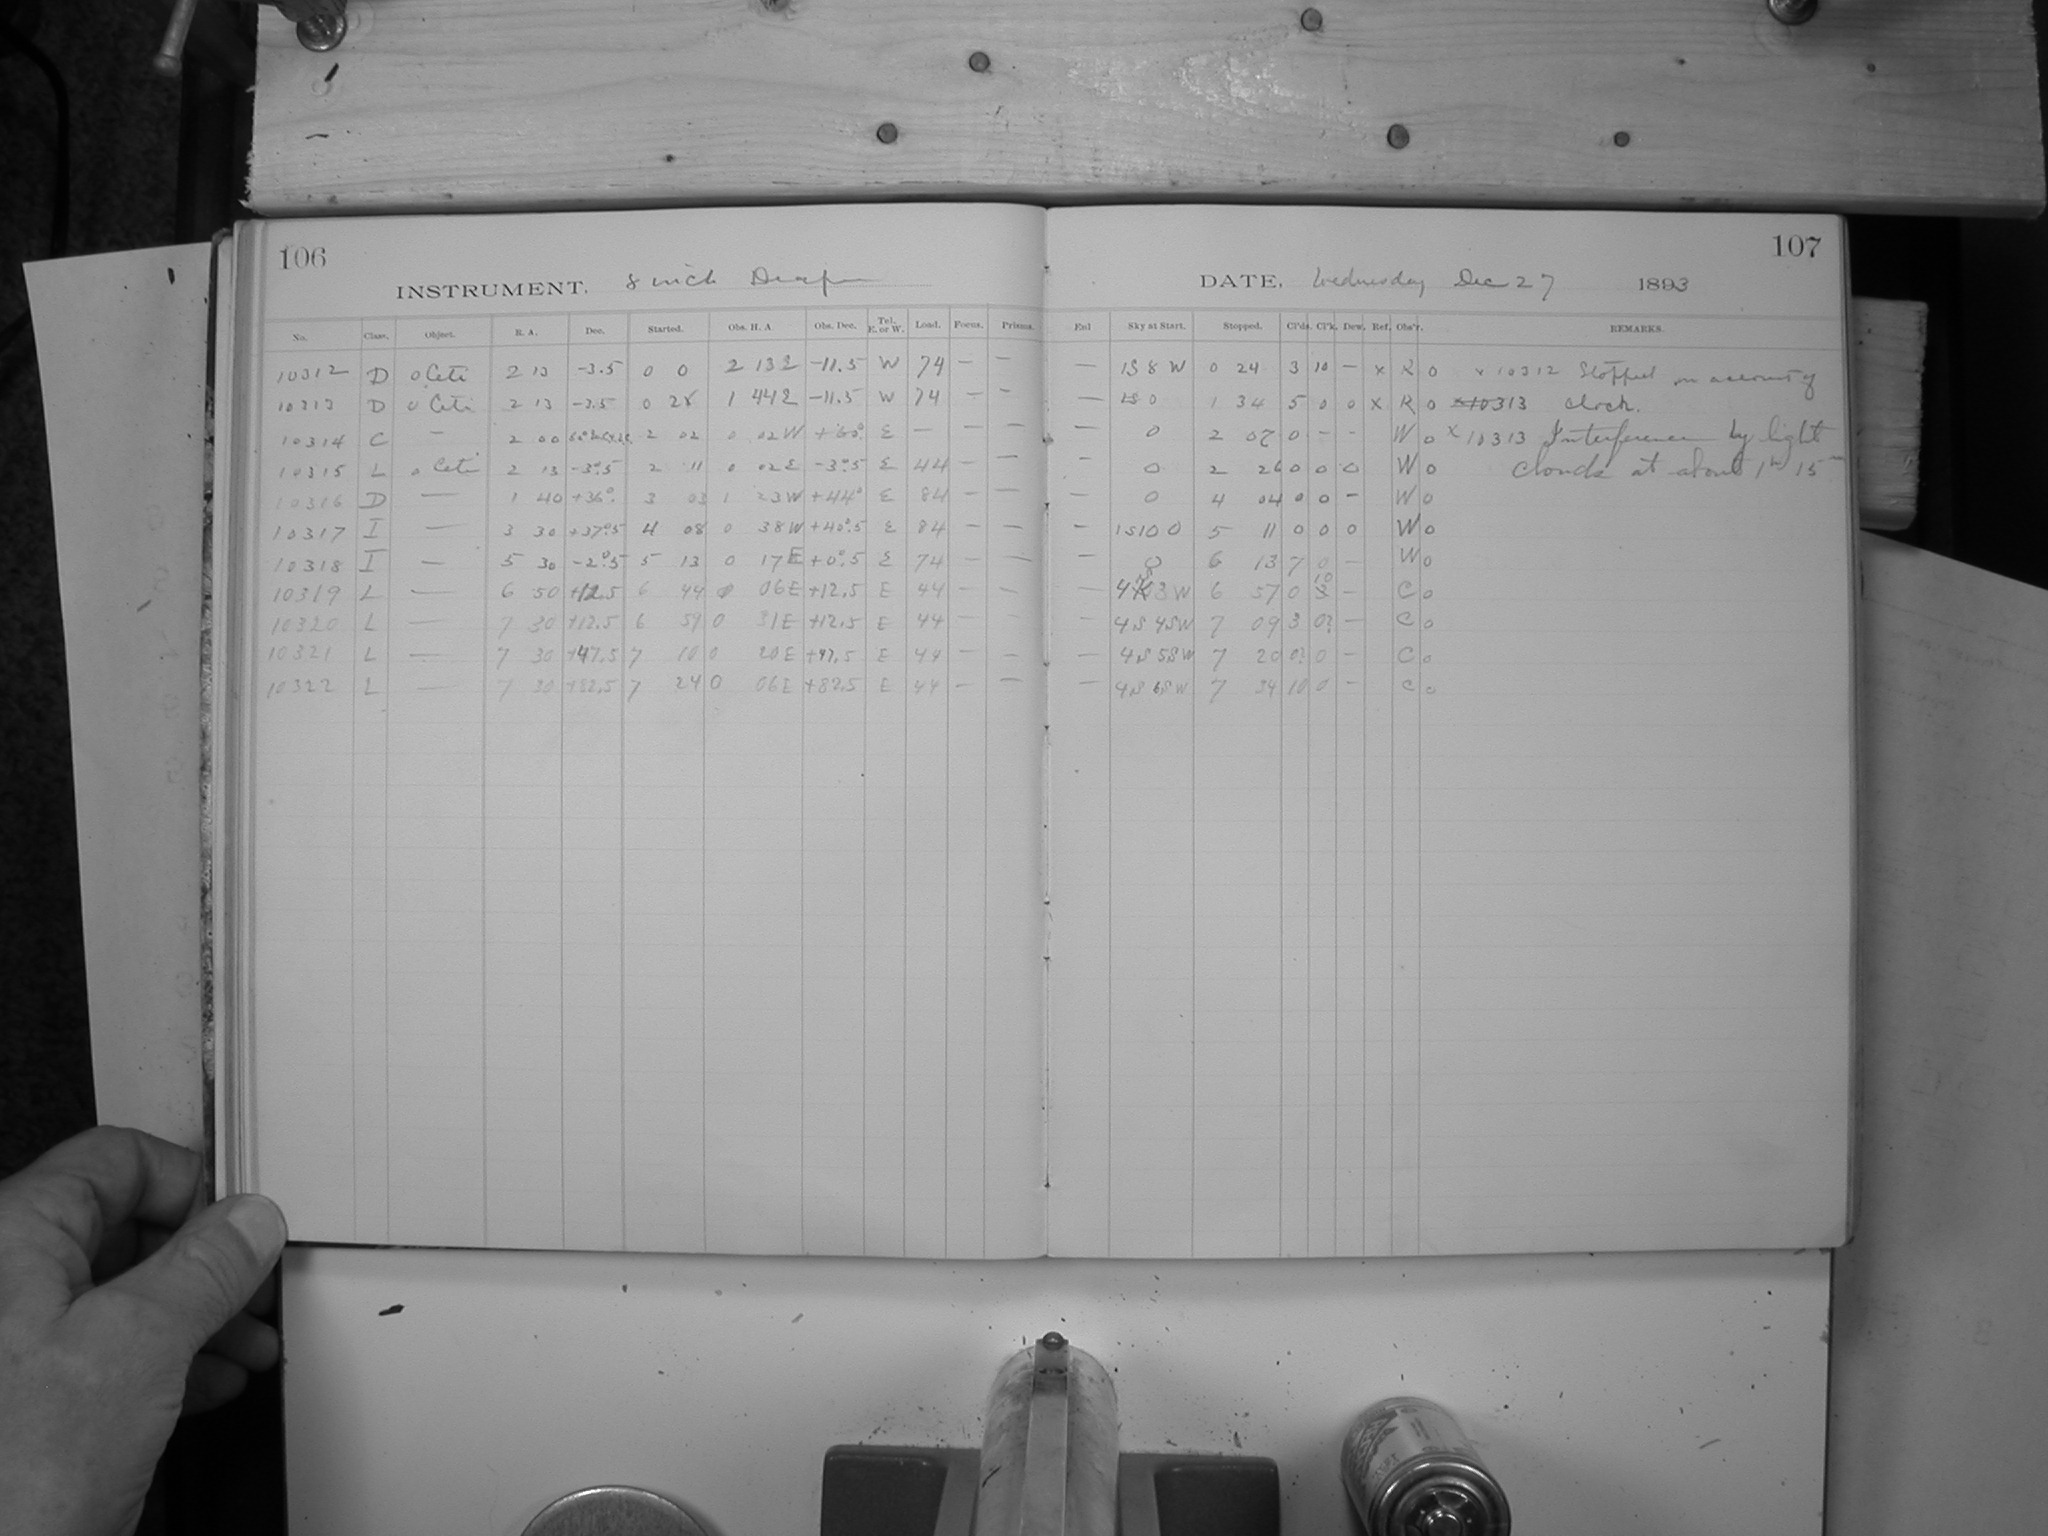 106
107
INSTRUMENT. 8 inch Draper
DATE. Wednesday Dec 27 1893
No. Class. Object. R. A. Dec. Started. Obs. H. A. Obs. Dec. Tel. E. or W. Load. Focus. Prisms. Enl Sky at Start. Stopped. Cl'ds. Cl'k. Dew. Ref. Obs'r. REMARKS.
10312 D o Ceti 2 13 -3.5 0 0 2 13 E -11.5 W 74 — — — 1S 8 W 0 24 3 10 — x R o x 10312 Stopped on account of
10313 D o Ceti 2 13 -3.5 0 28 1 44 E -11.5 W 74 — — — 1S 0 1 34 5 0 0 x R o x10313 clock.
10314 C — 2 00 2 02 0 02 W +60° E — — — 0 2 07 0 - - W o x 10313 Interference by light
10315 L o Ceti 2 13 -3°.5 2 11 0 02 E -3°.5 E 44 — — — 0 2 26 0 0 0 W o clouds at about 1h 15m
10316 D — 1 40 +36° 3 03 1 23 W +44° E 84 — — — 0 4 04 0 0 — W o
10317 I — 3 30 +37°.5 4 08 0 38 W +40°.5 E 84 — — — 1S 10 0 5 11 0 0 0 W o
10318 I — 5 30 -2°.5 5 13 0 17 E +0°.5 E 74 — — — 0 6 13 7 0 — W o
10319 L — 6 50 +12.5 6 44 0 06 E +12.5 E 44 — — — 4 S 3 W 6 57 0 10 — C o
10320 L — 7 30 +12.5 6 59 0 31 E +12.5 E 44 — — — 4S 4SW 7 09 3 0? — C o
10321 L — 7 30 +47.5 7 10 0 20 E +47.5 E 44 — — — 4S 5SW 7 20 0? 0 — C o
10322 L — 7 30 +82.5 7 24 0 06 E +82.5 E 44 — — — 4S 6SW 7 34 10 0 — C o